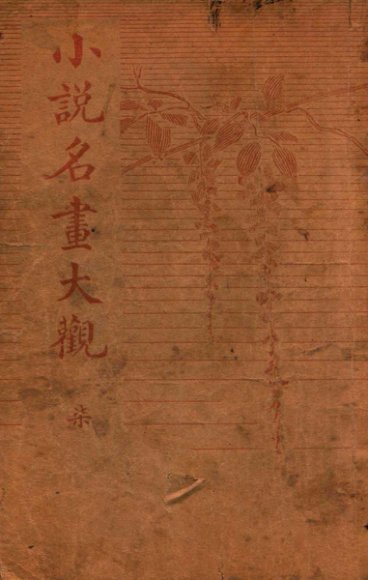 小説名畫大觀
柒